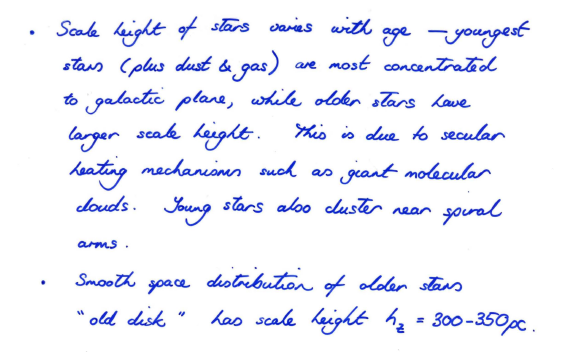 • Scale height of stars varies with age — youngest
stars (plus dust & gas) are most concentrated
to galactic plane, while older stars have
larger scale height. This is due to secular
heating mechanisms such as giant molecular
clouds. Young stars also cluster near spiral
arms.
• Smooth space distribution of older stars
"old disk" has scale height h_z = 300-350pc.